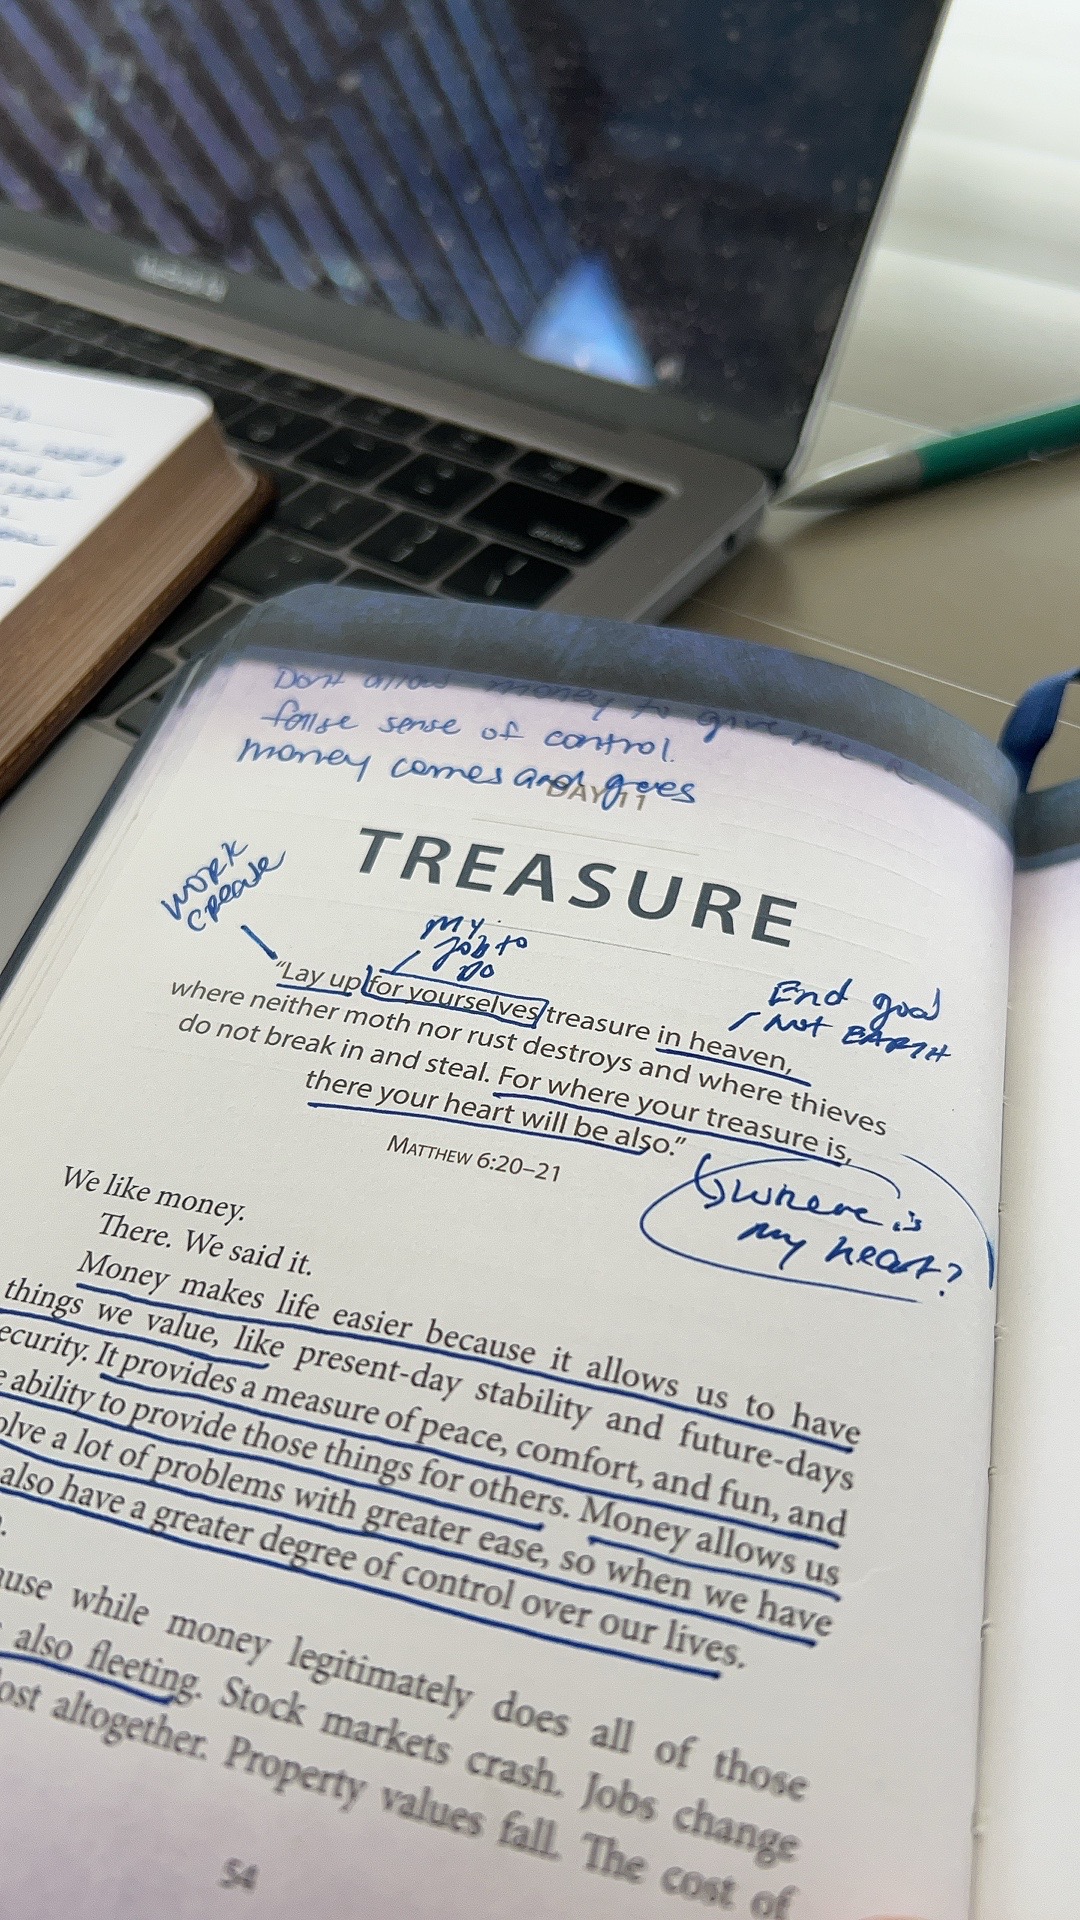 Dont allow money to give me a
false sense of control.
money comes and goes
DAY 11
TREASURE
WORK
create
my
Job to
Do
End goal
not EARTH
"Lay up for yourselves treasure in heaven,
where neither moth nor rust destroys and where thieves
do not break in and steal. For where your treasure is,
there your heart will be also."
MATTHEW 6:20–21
where is
my heart?
We like money.
There. We said it.
Money makes life easier because it allows us to have
things we value, like present-day stability and future-days
ecurity. It provides a measure of peace, comfort, and fun, and
ability to provide those things for others. Money allows us
olve a lot of problems with greater ease, so when we have
also have a greater degree of control over our lives.
ause while money legitimately does all of those
also fleeting. Stock markets crash. Jobs change
ost altogether. Property values fall. The cost of
54